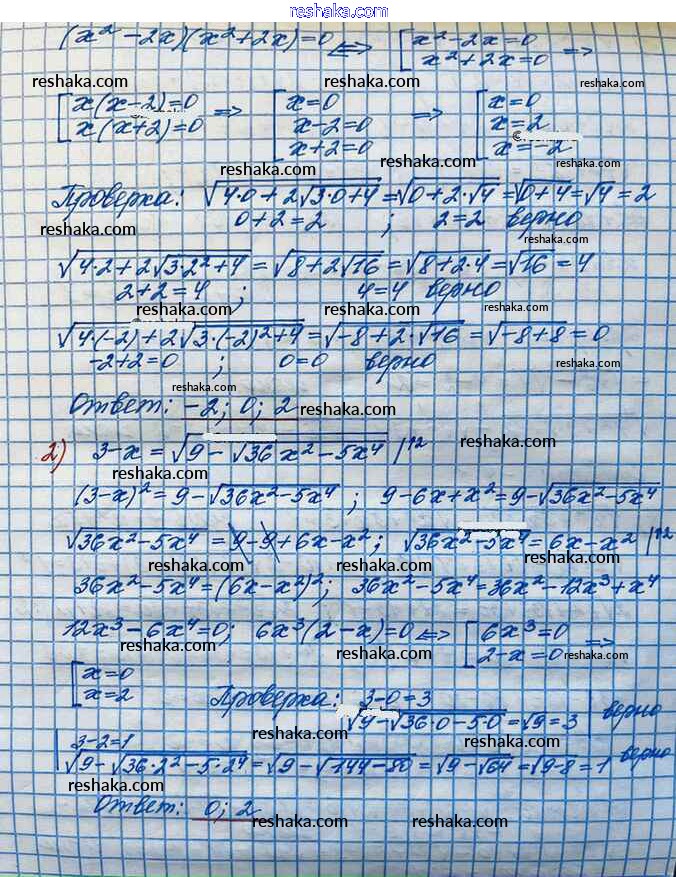 reshaka.com
(x² - 2x)(x² + 2x) = 0 <=> [ x² - 2x = 0
x² + 2x = 0 =>
reshaka.com reshaka.com reshaka.com
[ x(x-2) = 0
x(x+2) = 0 => [ x = 0
x - 2 = 0
x + 2 = 0 => [ x = 0
x = 2
x = -2
reshaka.com reshaka.com
Проверка: √(4·0 + 2√(3·0+4)) = √(0 + 2·√4) = √(0+4) = √4 = 2
0 + 2 = 2 ; 2 = 2 верно
reshaka.com reshaka.com reshaka.com
√(4·2 + 2√(3·2²+4)) = √(8 + 2√16) = √(8+2·4) = √16 = 4
2 + 2 = 4 ; 4 = 4 верно
reshaka.com reshaka.com
√(4·(-2) + 2√(3·(-2)²+4)) = √(-8 + 2·√16) = √(-8+8) = 0
-2 + 2 = 0 ; 0 = 0 верно
reshaka.com reshaka.com
Ответ: -2; 0; 2
reshaka.com
2) 3 - x = √(9 - √(36x² - 5x⁴)) |^2
reshaka.com reshaka.com
(3-x)² = 9 - √(36x² - 5x⁴) ; 9 - 6x + x² = 9 - √(36x² - 5x⁴)
reshaka.com reshaka.com
√(36x² - 5x⁴) = 9 - 9 + 6x - x² ; √(36x² - 5x⁴) = 6x - x² |^2
reshaka.com reshaka.com reshaka.com
36x² - 5x⁴ = (6x - x²)² ; 36x² - 5x⁴ = 36x² - 12x³ + x⁴
reshaka.com reshaka.com
12x³ - 6x⁴ = 0 ; 6x³(2-x) = 0 <=> [ 6x³ = 0
2 - x = 0 =>
reshaka.com reshaka.com reshaka.com
[ x = 0
x = 2
Проверка: 3 - 0 = 3
√(9 - √(36·0 - 5·0)) = √9 = 3 верно
reshaka.com reshaka.com
3 - 2 = 1
√(9 - √(36·2² - 5·2⁴)) = √(9 - √(144 - 80)) = √(9 - √64) = √(9-8) = 1 верно
reshaka.com reshaka.com
Ответ: 0; 2
reshaka.com reshaka.com